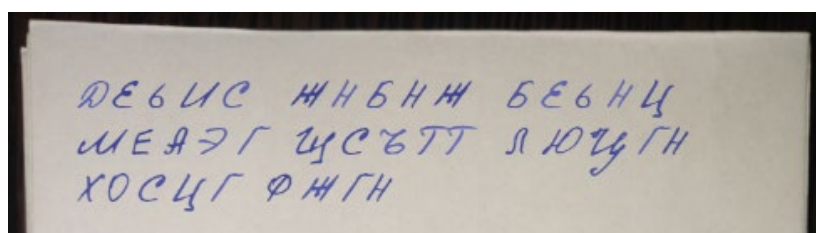 ДЕЬИС ЖНБНЖ БЕЬНЦ
МЕАЭГ ЩСЪТТ ЛЮЩГН
ХОСЦГ ФЖГН